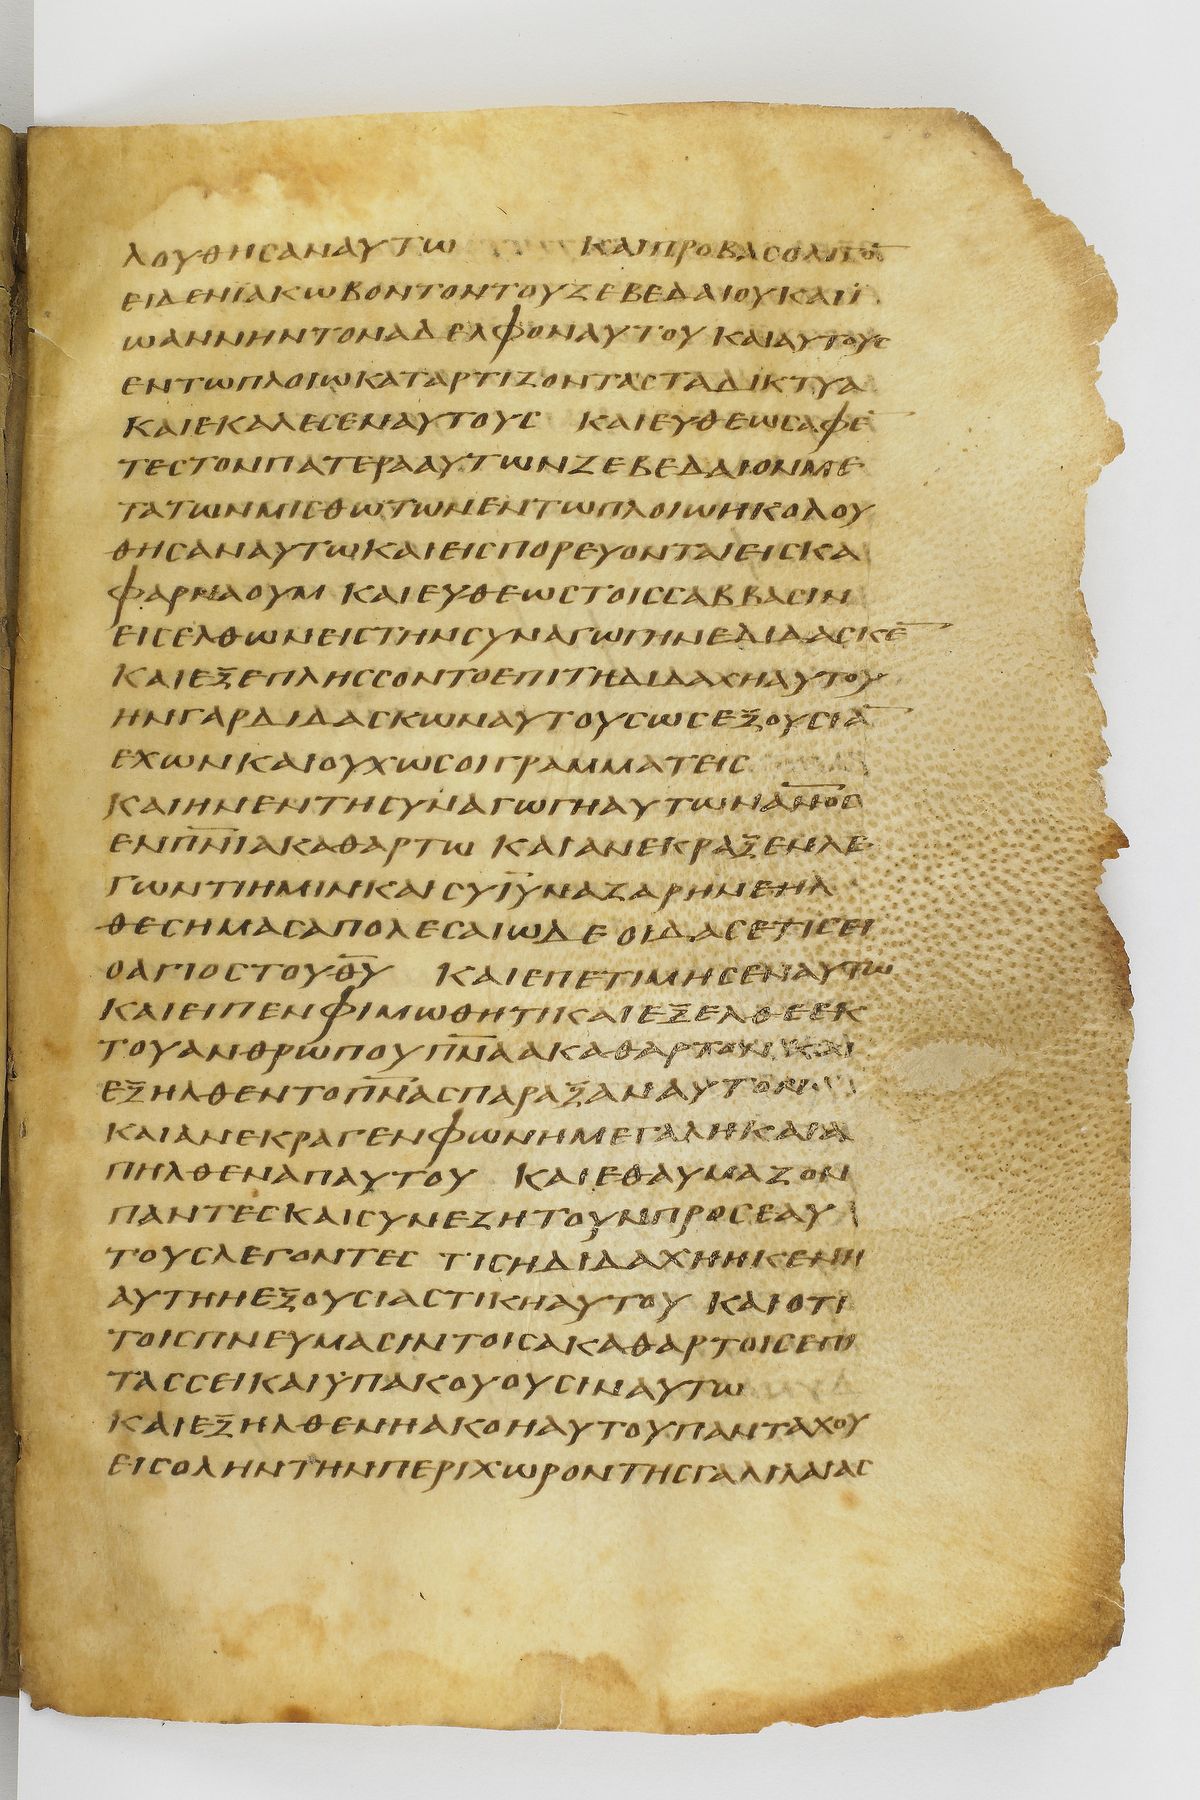 ΛΟΥΘΗCΑΝΑΥΤΩ ΚΑΙΠΡΟΒΑCΟΛΙΓΟ̅
ΕΙΔΕΝΪΑΚΩΒΟΝΤΟΝΤΟΥΖΕΒΕΔΑΙΟΥΚΑΙΪ
ΩΑΝΝΗΝΤΟΝΑΔΕΛΦΟΝΑΥΤΟΥ ΚΑΙΑΥΤΟΥC
ΕΝΤΩΠΛΟΙΩΚΑΤΑΡΤΙΖΟΝΤΑCΤΑΔΙΚΤΥΑ
ΚΑΙΕΚΑΛΕCΕΝΑΥΤΟΥC ΚΑΙΕΥΘΕΩCΑΦΕ̅
ΤΕCΤΟΝΠΑΤΕΡΑΑΥΤΩΝΖΕΒΕΔΑΙΟΝΜΕ
ΤΑΤΩΝΜΙCΘΩΤΩΝΕΝΤΩΠΛΟΙΩΗΚΟΛΟΥ
ΘΗCΑΝΑΥΤΩΚΑΙΕΙCΠΟΡΕΥΟΝΤΑΙΕΙCΚΑ
ΦΑΡΝΑΟΥΜ ΚΑΙΕΥΘΕΩCΤΟΙCCΑΒΒΑCΙΝ
ΕΙCΕΛΘΩΝΕΙCΤΗΝCΥΝΑΓΩΓΗΝΕΔΙΔΑCΚΕ̅
ΚΑΙΕΞΕΠΛΗCCΟΝΤΟΕΠΙΤΗΔΙΔΑΧΗΑΥΤΟΥ
ΗΝΓΑΡΔΙΔΑCΚΩΝΑΥΤΟΥCΩCΕΞΟΥCΙΑ̅
ΕΧΩΝΚΑΙΟΥΧΩCΟΙΓΡΑΜΜΑΤΕΙC
ΚΑΙΗΝΕΝΤΗCΥΝΑΓΩΓΗΑΥΤΩΝΑ̅Ν̅Ο̅C̅
ΕΝΠ̅Ν̅Ι̅ΑΚΑΘΑΡΤΩ ΚΑΙΑΝΕΚΡΑΞΕΝΛΕ
ΓΩΝΤΙΗΜΙΝΚΑΙCΥΙ̅Υ̅ΝΑΖΑΡΗΝΕΗΛ
ΘΕCΗΜΑCΑΠΟΛΕCΑΙΩΔΕ ΟΙΔΑCΕΤΙCΕΙ
ΟΑΓΙΟCΤΟΥΘ̅Υ̅ ΚΑΙΕΠΕΤΙΜΗCΕΝΑΥΤΩ
ΚΑΙΕΙΠΕΝΦΙΜΩΘΗΤΙΚΑΙΕΞΕΛΘΕΕΚ
ΤΟΥΑΝΘΡΩΠΟΥΠ̅Ν̅Α̅ΑΚΑΘΑΡΤΟΝ ΚΑΙ
ΕΞΗΛΘΕΝΤΟΠ̅Ν̅Α̅CΠΑΡΑΞΑΝΑΥΤΟΝ
ΚΑΙΑΝΕΚΡΑΓΕΝΦΩΝΗΜΕΓΑΛΗΚΑΙΑ
ΠΗΛΘΕΝΑΠΑΥΤΟΥ ΚΑΙΕΘΑΥΜΑΖΟΝ
ΠΑΝΤΕCΚΑΙCΥΝΕΖΗΤΟΥΝΠΡΟCΕΑΥ
ΤΟΥCΛΕΓΟΝΤΕC ΤΙCΗΔΙΔΑΧΗΗΚΕΝΗ
ΑΥΤΗΗΕΞΟΥCΙΑCΤΙΚΗΑΥΤΟΥ ΚΑΙΟΤΙ
ΤΟΙCΠΝΕΥΜΑCΙΝΤΟΙCΑΚΑΘΑΡΤΟΙCΕΠΙ
ΤΑCCΕΙΚΑΙΫΠΑΚΟΥΟΥCΙΝΑΥΤΩ
ΚΑΙΕΞΗΛΘΕΝΗΑΚΟΗΑΥΤΟΥΠΑΝΤΑΧΟΥ
ΕΙCΟΛΗΝΤΗΝΠΕΡΙΧΩΡΟΝΤΗCΓΑΛΙΛΑΙΑC